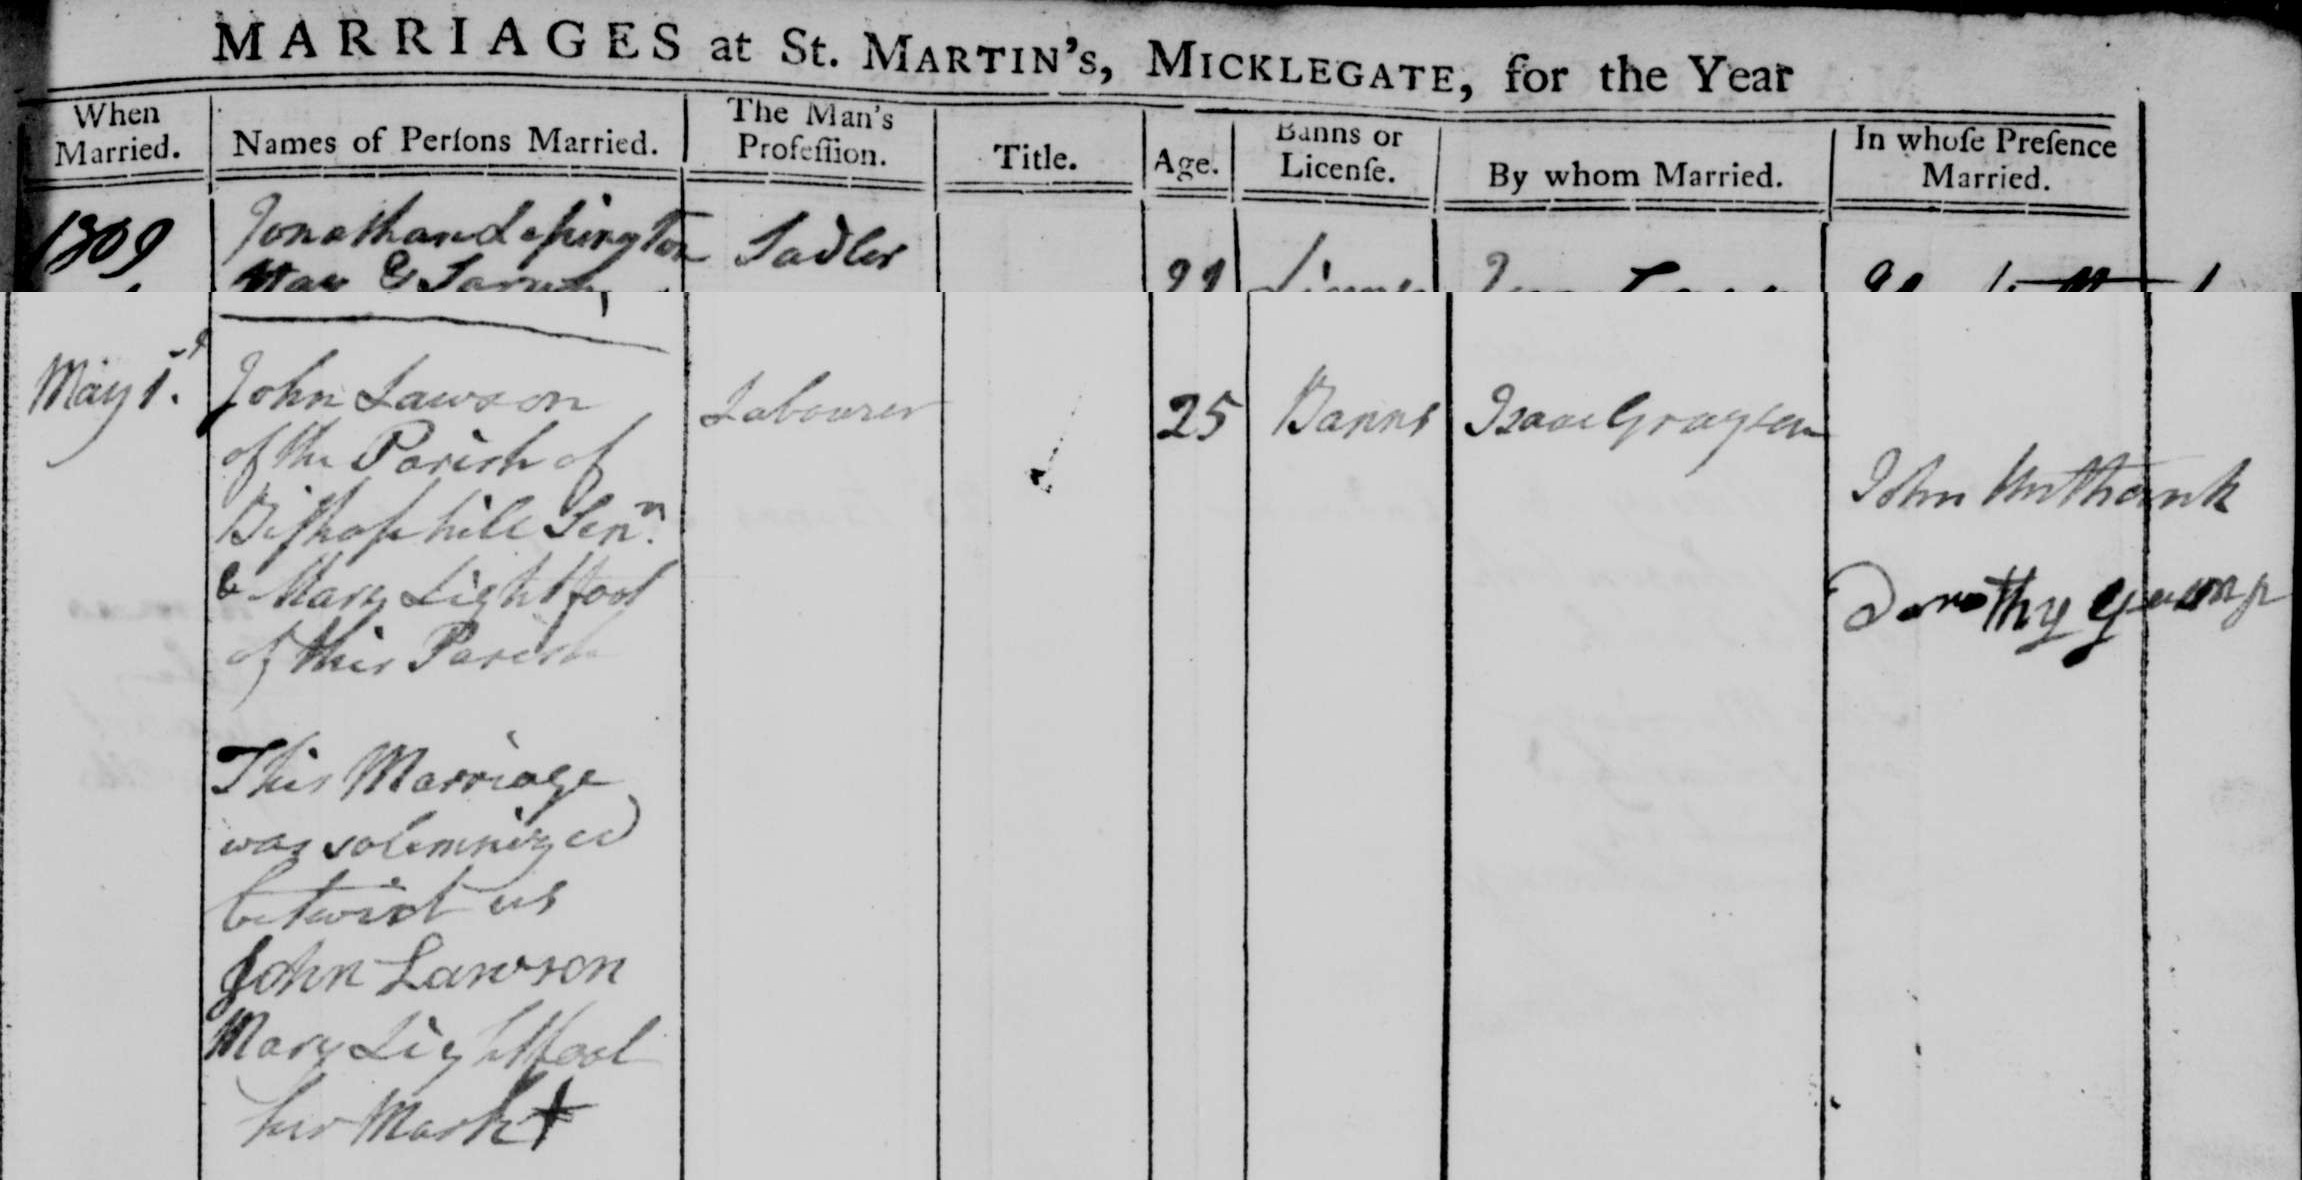 MARRIAGES at St. MARTIN's, MICKLEGATE, for the Year
When Married.
Names of Perſons Married.
The Man's Profeſſion.
Title.
Age.
Banns or Licenſe.
By whom Married.
In whoſe Preſence Married.
1809
Jonathan
Sadler
May 1st.
John Lawson
of the Parish of
Bishophill Senr.
& Mary Lightfoot
of this Parish
Labourer
25
Banns
Isaac Grayson
John Unthank
Dorothy
This Marriage
was solemnized
betwixt us
John Lawson
Mary Lightfoot
her Mark +